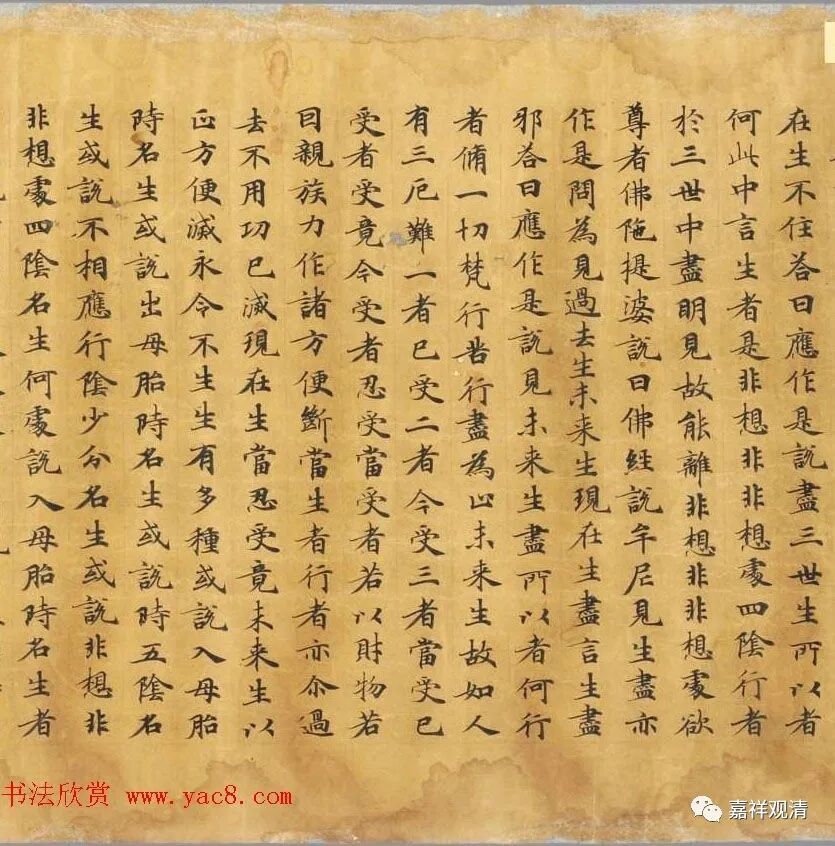 在生不住荅曰應作是說盡三世生所以者
何此中言生者是非想非非想處四陰行者
於三世中盡明見故能離非想非非想處欲
尊者佛陁提婆說曰佛經說牟尼見生盡亦
作是問為見過去生未来生現在生盡言生盡
邪荅曰應作是說見未来生盡所以者何行
者脩一切梵行苦行盡為止未来生故如人
有三厄難一者已受二者今受三者當受已
受者受竟今受者忍受當受者若以財物若
因親族力作諸方便斷當生者行者亦尒過
去不用功已滅現在生當忍受竟未来生以
正方便滅永令不生生有多種或說入母胎
時名生或說出母胎時名生或說時五陰名
生或說不相應行陰少分名生或說非想非
非想處四陰名生何處說入母胎時名生者
书法欣赏 www.yac8.com
嘉祥观清